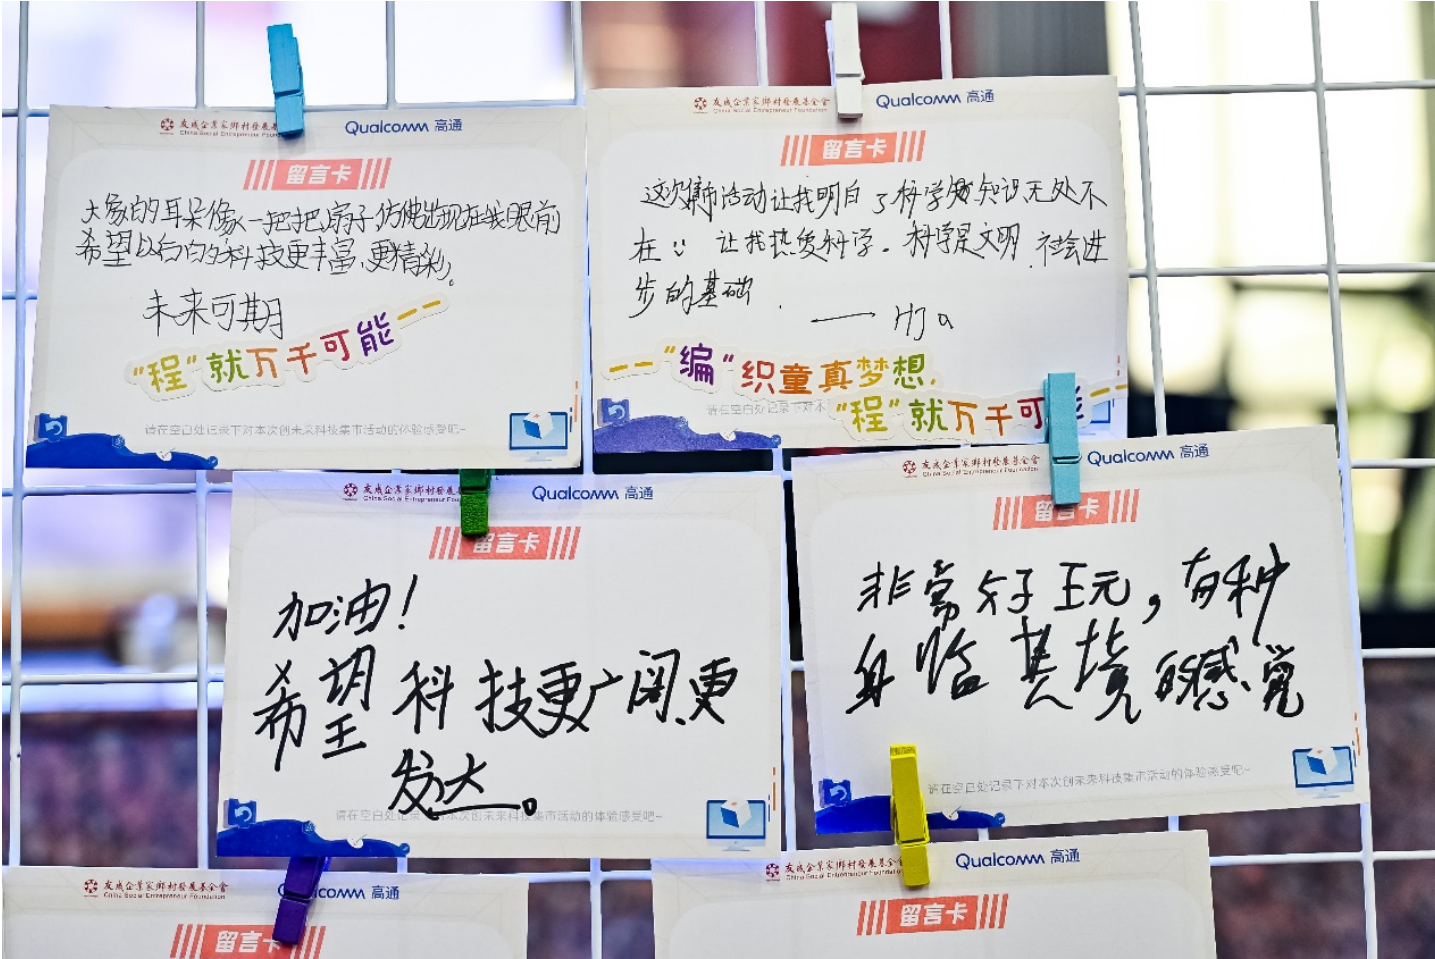 友成企業家鄉村發展基
China Social Entrepreneur Foun
Qualcomm 高通
留言卡
大象的耳朵像一把把扇子,仿佛出现在我眼前
希望以后的科技更丰富、更精彩。
未来可期
“程”就万千可能——
请在空白处记录下对本次创未来科技集市活动的体验感受吧~
友成企業家鄉村發展基金會
China Social Entrepreneur Foundation
Qualcomm 高通
留言卡
这次集市活动让我明白了科学知识无处不
在 让我热爱科学。科学是文明、社会进
步的基础.
——“编”织童真梦想,
请在空白处记录下对本
“程”就万千可能——
友成企業家鄉村發展基
China Social Entrepreneur Foun
Qualcomm 高通
留言卡
加油!
希望科技更广阔、更
发达。
请在空白处记录下对本次创未来科技集市活动的体验感受吧~
友成企業家鄉村發展基金會
China Social Entrepreneur Foundation
Qualcomm 高通
留言卡
非常好玩,有种
身临其境的感觉
请在空白处记录下对本次创未来科技集市活动的体验感受吧~
友成企業家鄉村發展基金會
China Social Entrepreneur Foundation
Qualcomm 高通
留言卡
友成企業家鄉村發展基金會
China Social Entrepreneur Foundation
Qualcomm 高通
留言卡